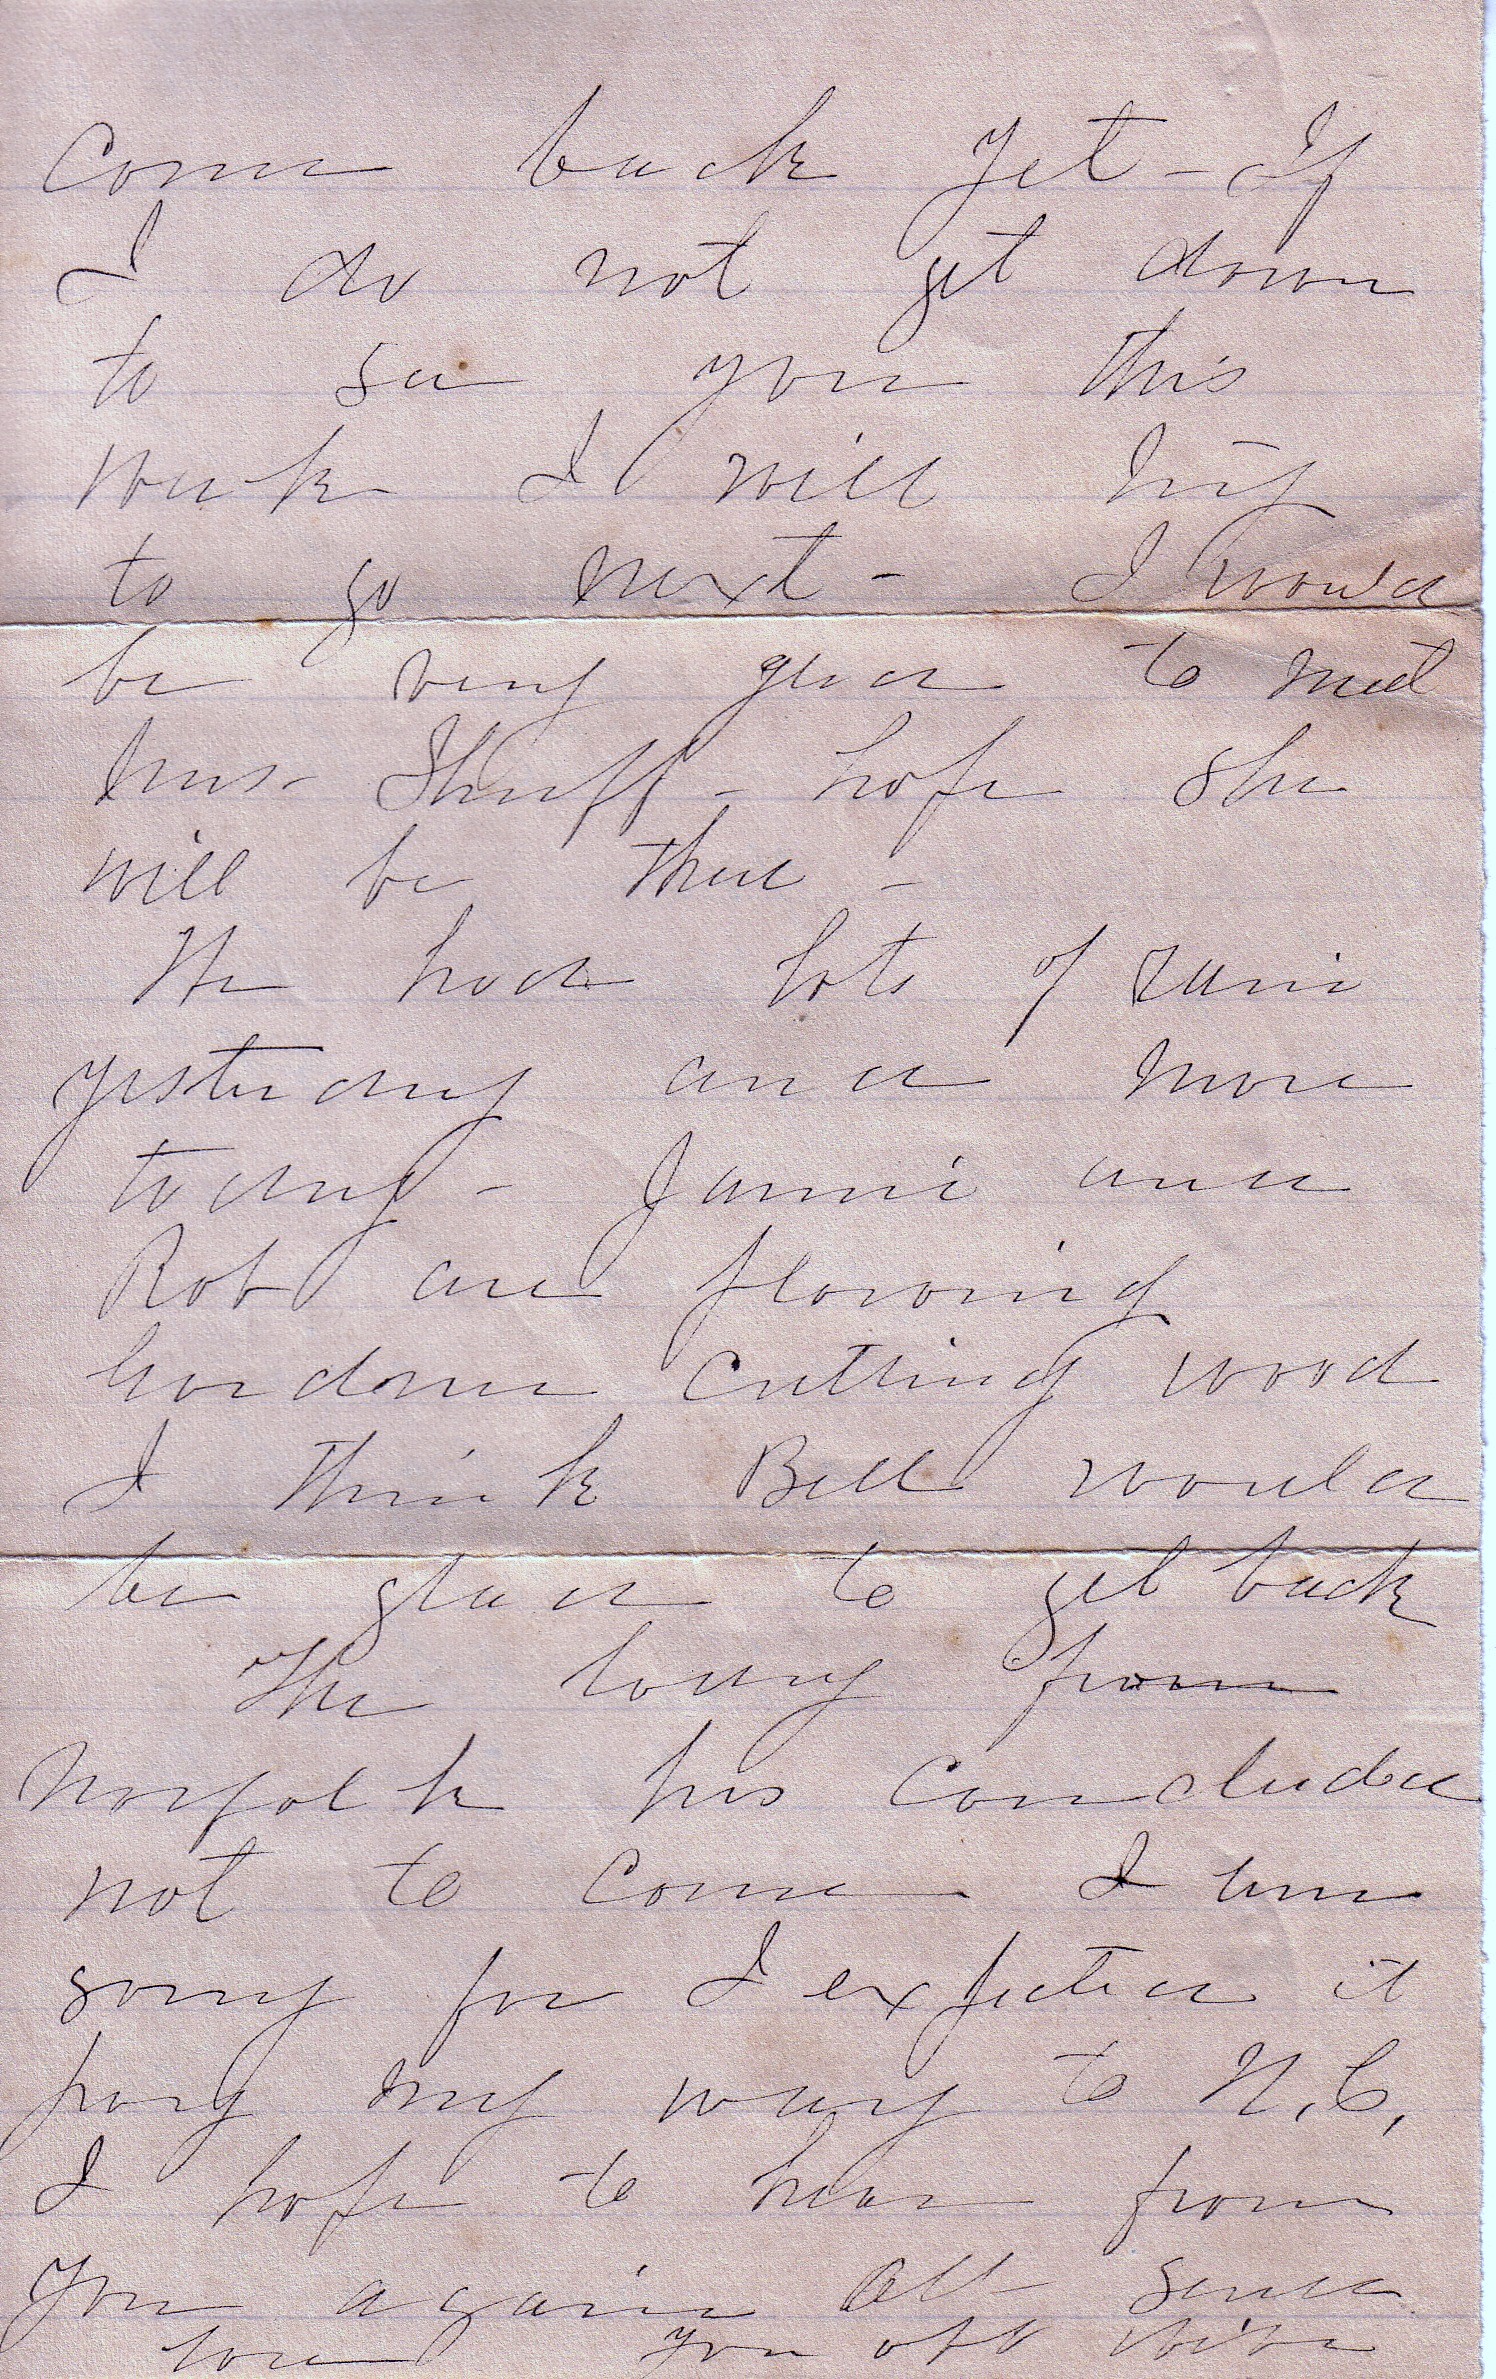 Come back yet - If
I do not get down
to see you this
week I will try
to go next - I would
be very glad to meet
Mrs Shuff - hope she
will be there -
We had lots of rain
yesterday and more
today - Jamie and
Rob are plowing
Gordon cutting wood
I think Bell would
be glad to get back
The young from
Norfolk has concluded
not to come I am
sorry for I expected it
pay my way to N.C.
I hope to hear from
you again all send
love you all